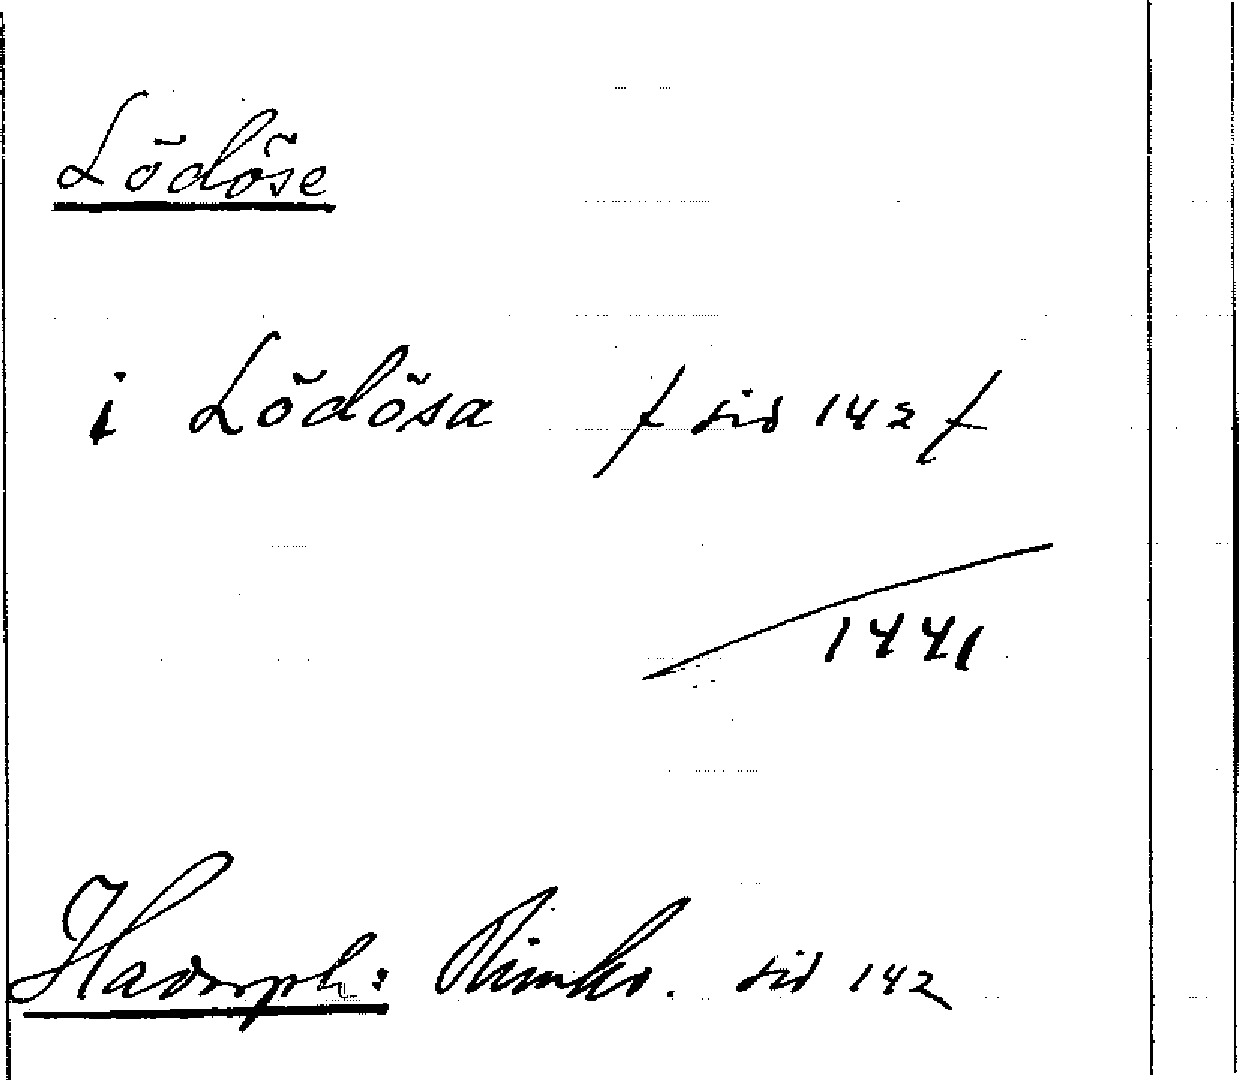 Lödöse
i Lödösa / sid 142 /
1441
Hadorph: Rimkr. sid 142